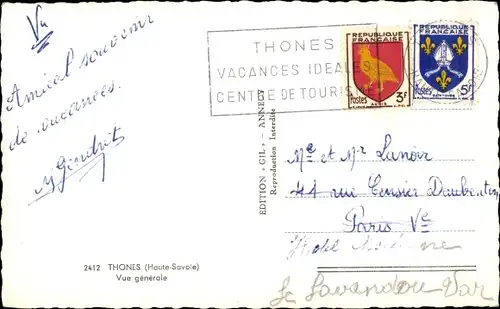 Vu
Amical souvenir
de vacances.
M Gindrit
2412 THONES (Haute-Savoie)
Vue générale
EDITION « GIL » - ANNECY
Reproduction Interdite
THONES
VACANCES IDEALES
CENTRE DE TOURISME
REPUBLIQUE
FRANÇAISE
AUNIS
Postes 3F
REPUBLIQUE
FRANÇAISE
Postes 5F
Me et Mr Lanoir
44 rue Censier Daubenton
Paris, Ve
Hotel
Le Lavandou Var